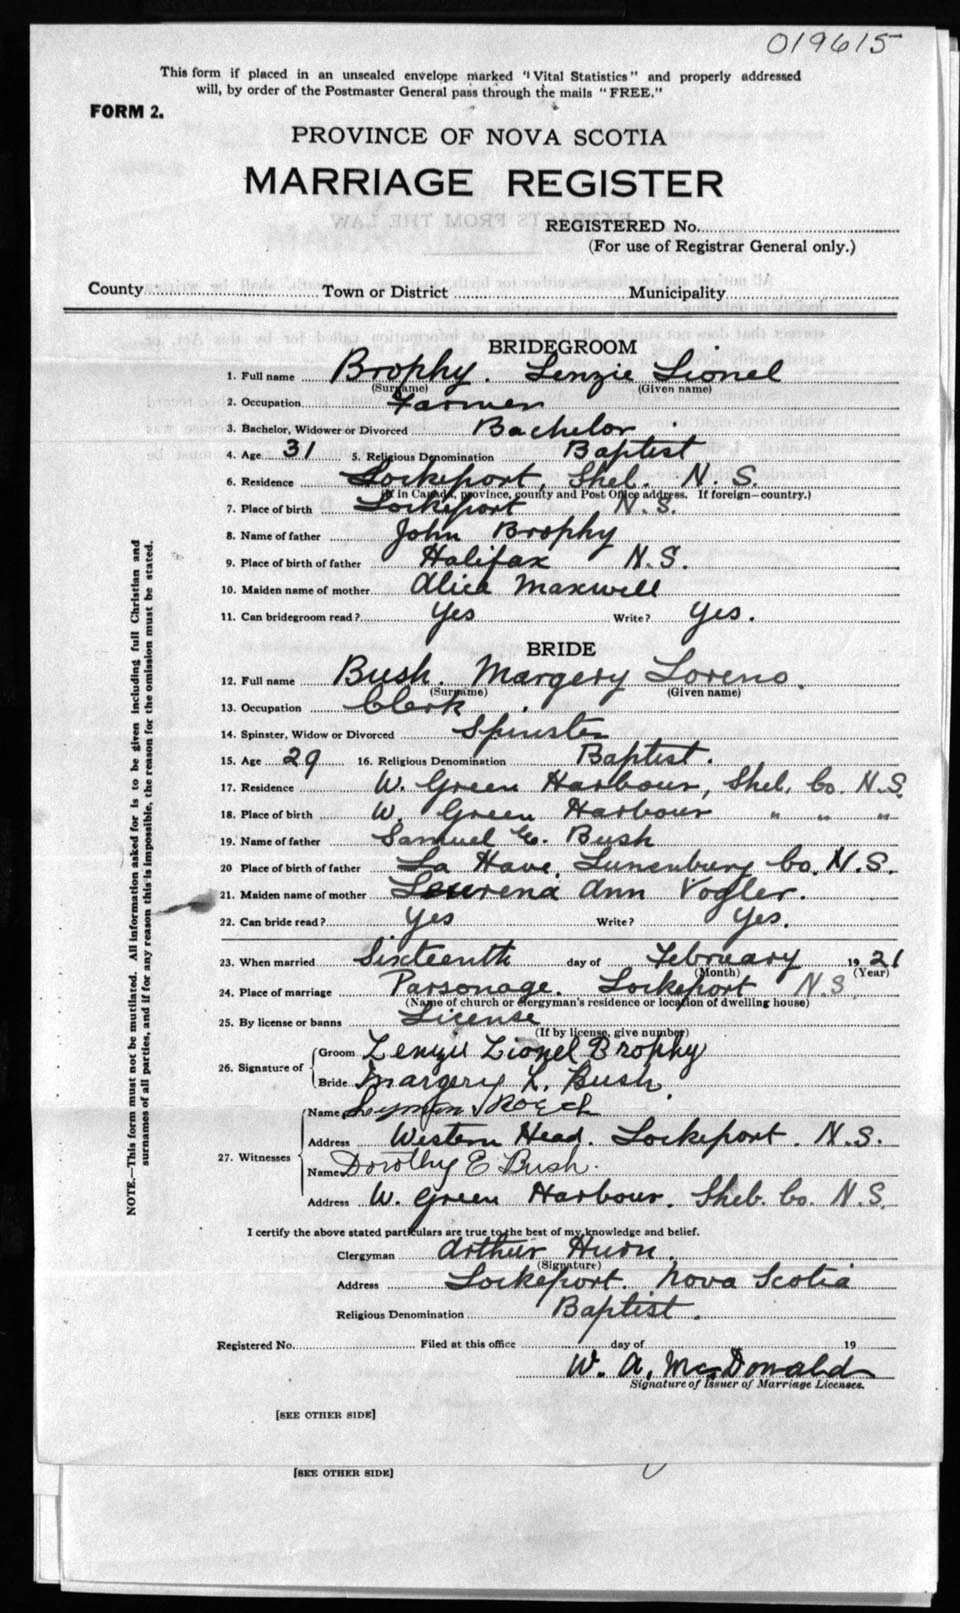 019615
This form if placed in an unsealed envelope marked "Vital Statistics" and properly addressed
will, by order of the Postmaster General pass through the mails "FREE."
FORM 2.
PROVINCE OF NOVA SCOTIA
MARRIAGE REGISTER
REGISTERED No.
(For use of Registrar General only.)
County Town or District Municipality
BRIDEGROOM
1. Full name Brophy. Lenzie Lionel
(Surname) (Given name)
2. Occupation Farmer
3. Bachelor, Widower or Divorced Bachelor
4. Age 31 5. Religious Denomination Baptist
6. Residence Lockeport, Shel. N. S.
(If in Canada, province, county and Post Office address. If foreign—country.)
7. Place of birth Lockeport N.S.
8. Name of father John Brophy
9. Place of birth of father Halifax N.S.
10. Maiden name of mother Alice Maxwell
11. Can bridegroom read? Yes Write? Yes.
BRIDE
12. Full name Bush. Margery Loreno.
(Surname) (Given name)
13. Occupation Clerk.
14. Spinster, Widow or Divorced Spinster
15. Age 29 16. Religious Denomination Baptist.
17. Residence W. Green Harbour, Shel. Co. N.S.
18. Place of birth W. Green Harbour " " "
19. Name of father Samuel E. Bush
20 Place of birth of father La Have, Lunenburg Co. N.S.
21. Maiden name of mother Laurena Ann Vogler.
22. Can bride read? Yes Write? Yes.
23. When married Sixteenth day of February 1921
(Month) (Year)
24. Place of marriage Parsonage. Lockeport N.S.
(Name of church or clergyman's residence or location of dwelling house)
25. By license or banns License
(If by license, give number)
26. Signature of Groom Lenzie Lionel Brophy
Bride Margery L. Bush.
27. Witnesses Name Lyman
Address Western Head. Lockeport. N.S.
Name Dorothy E Bush.
Address W. Green Harbour. Shel. Co. N.S.
I certify the above stated particulars are true to the best of my knowledge and belief.
Clergyman Arthur
(Signature)
Address Lockeport. Nova Scotia
Religious Denomination Baptist.
Registered No. Filed at this office day of 19
W. A. McDonald
Signature of Issuer of Marriage Licenses.
[SEE OTHER SIDE]
[SEE OTHER SIDE]
NOTE.—This form must not be mutilated. All information asked for is to be given including full Christian and
surnames of all parties, and if for any reason this is impossible, the reason for the omission must be stated.